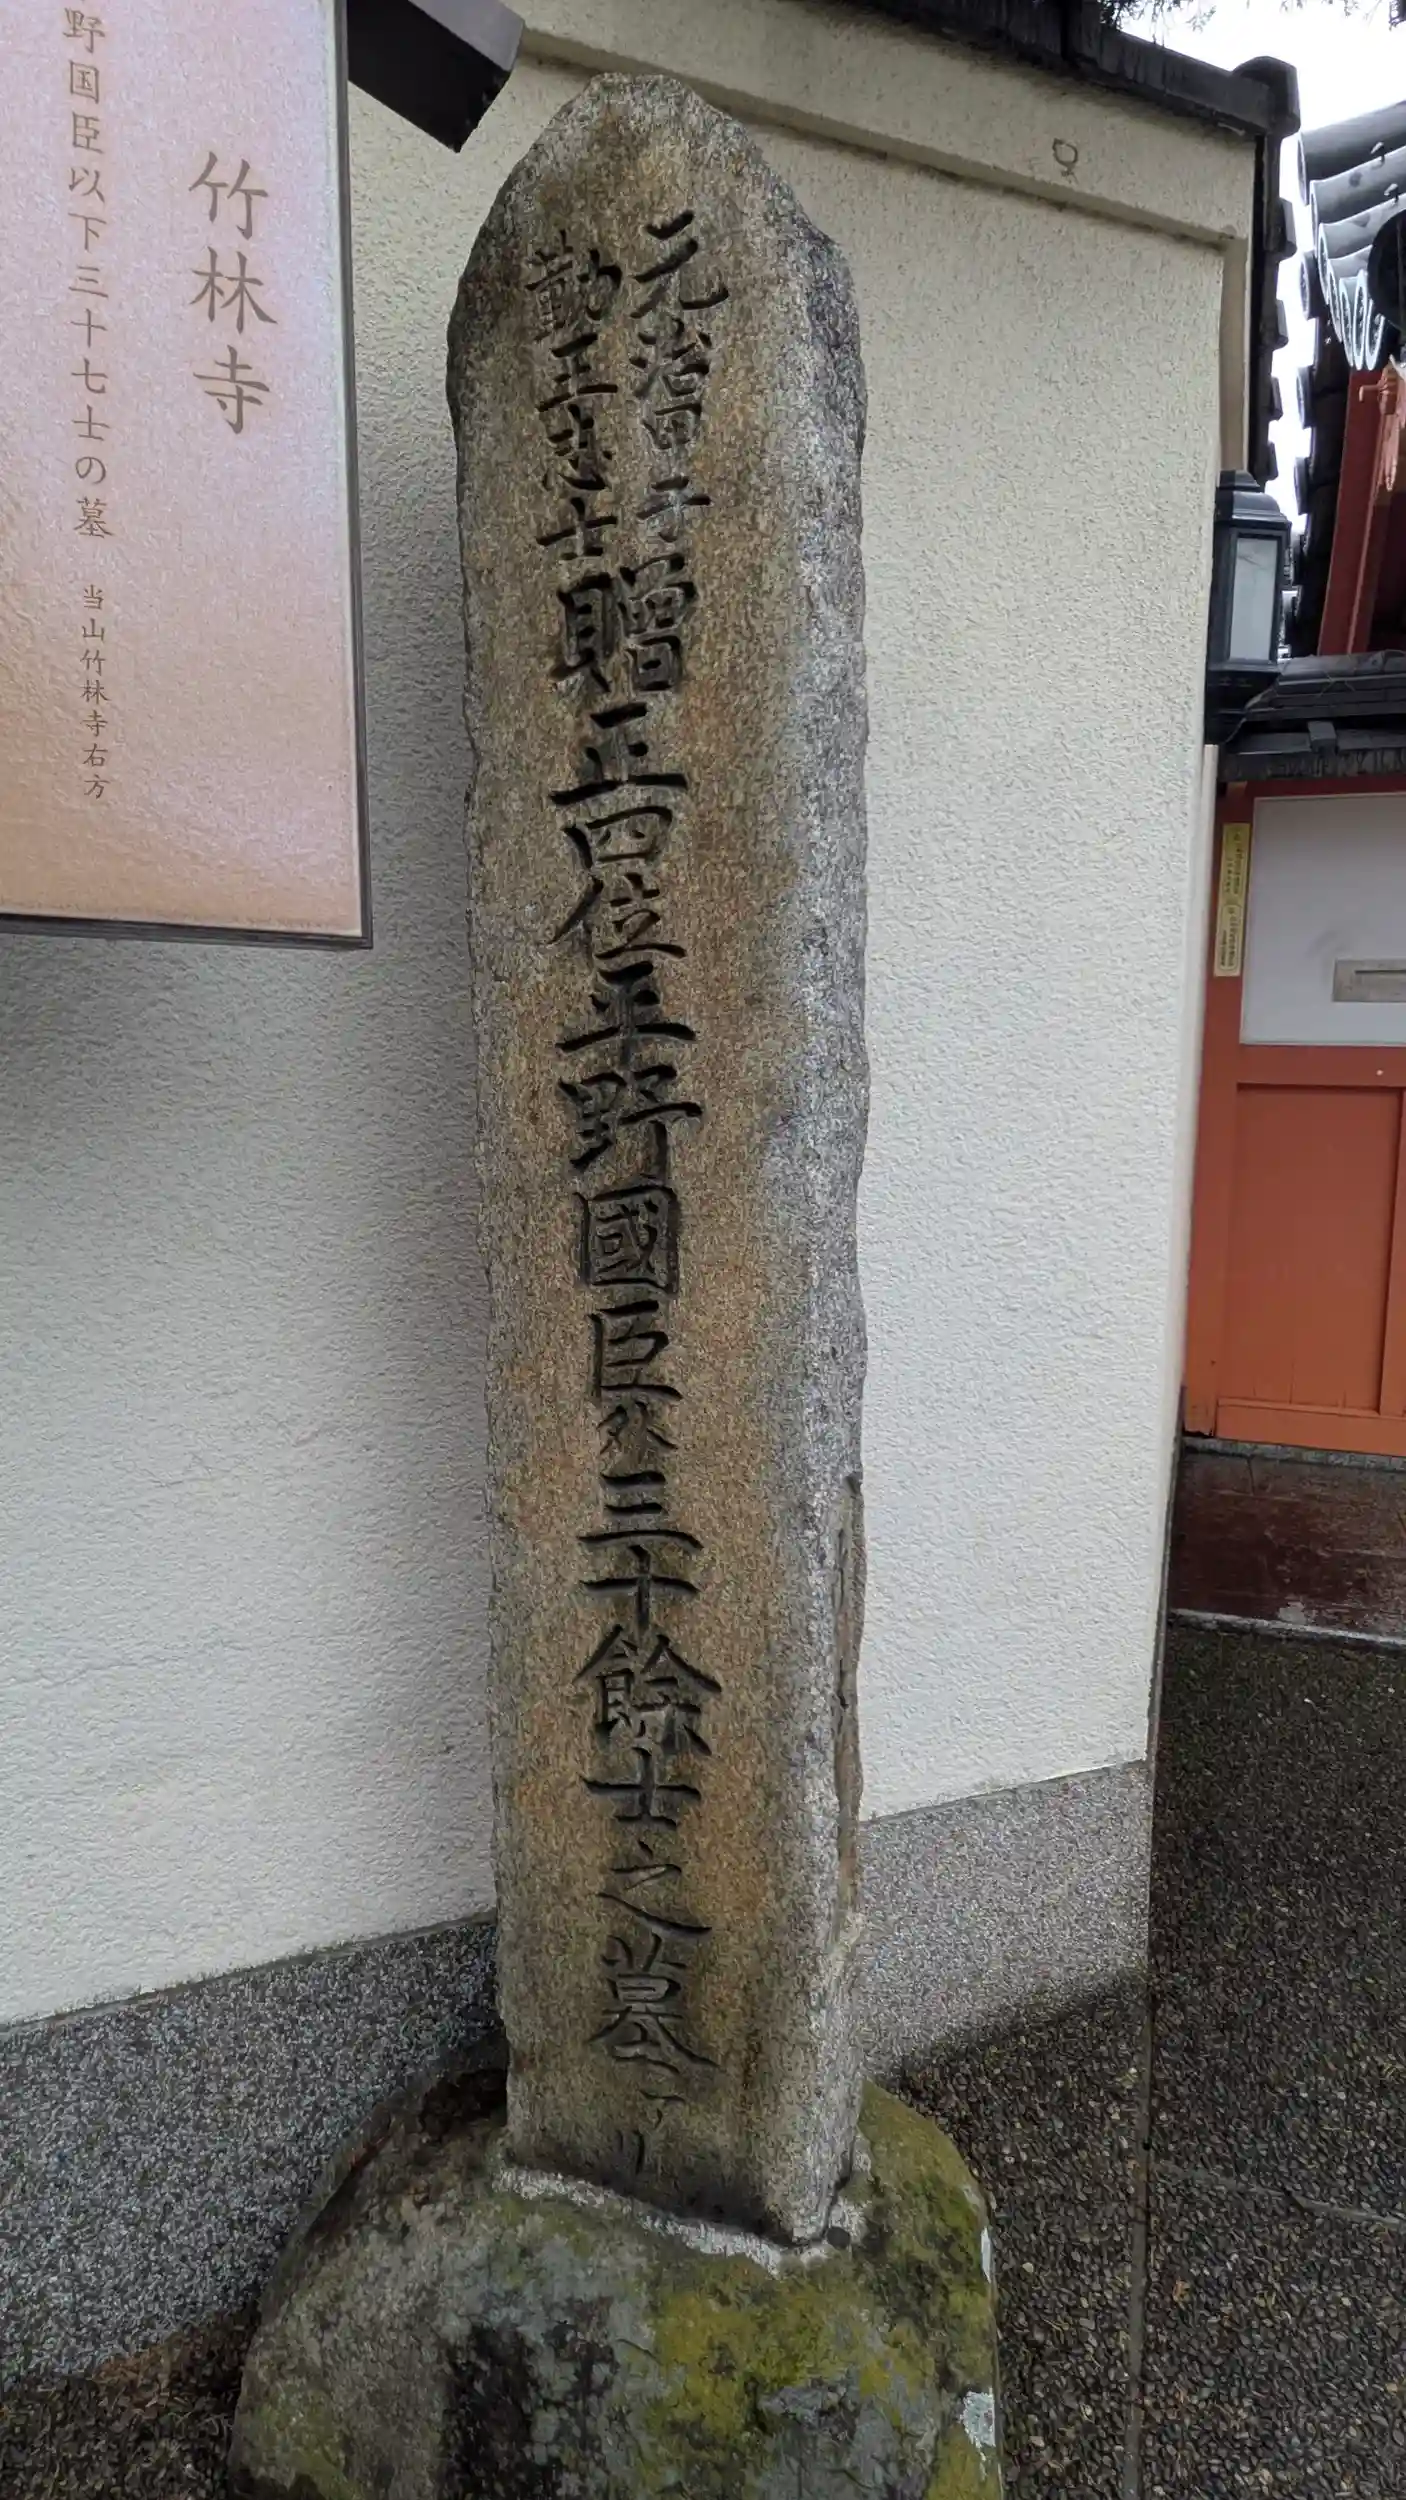 元治甲子
勤王志士
贈正四位平野國臣外三十餘士之墓アリ
竹林寺
野国臣以下三十七士の墓 当山竹林寺右方